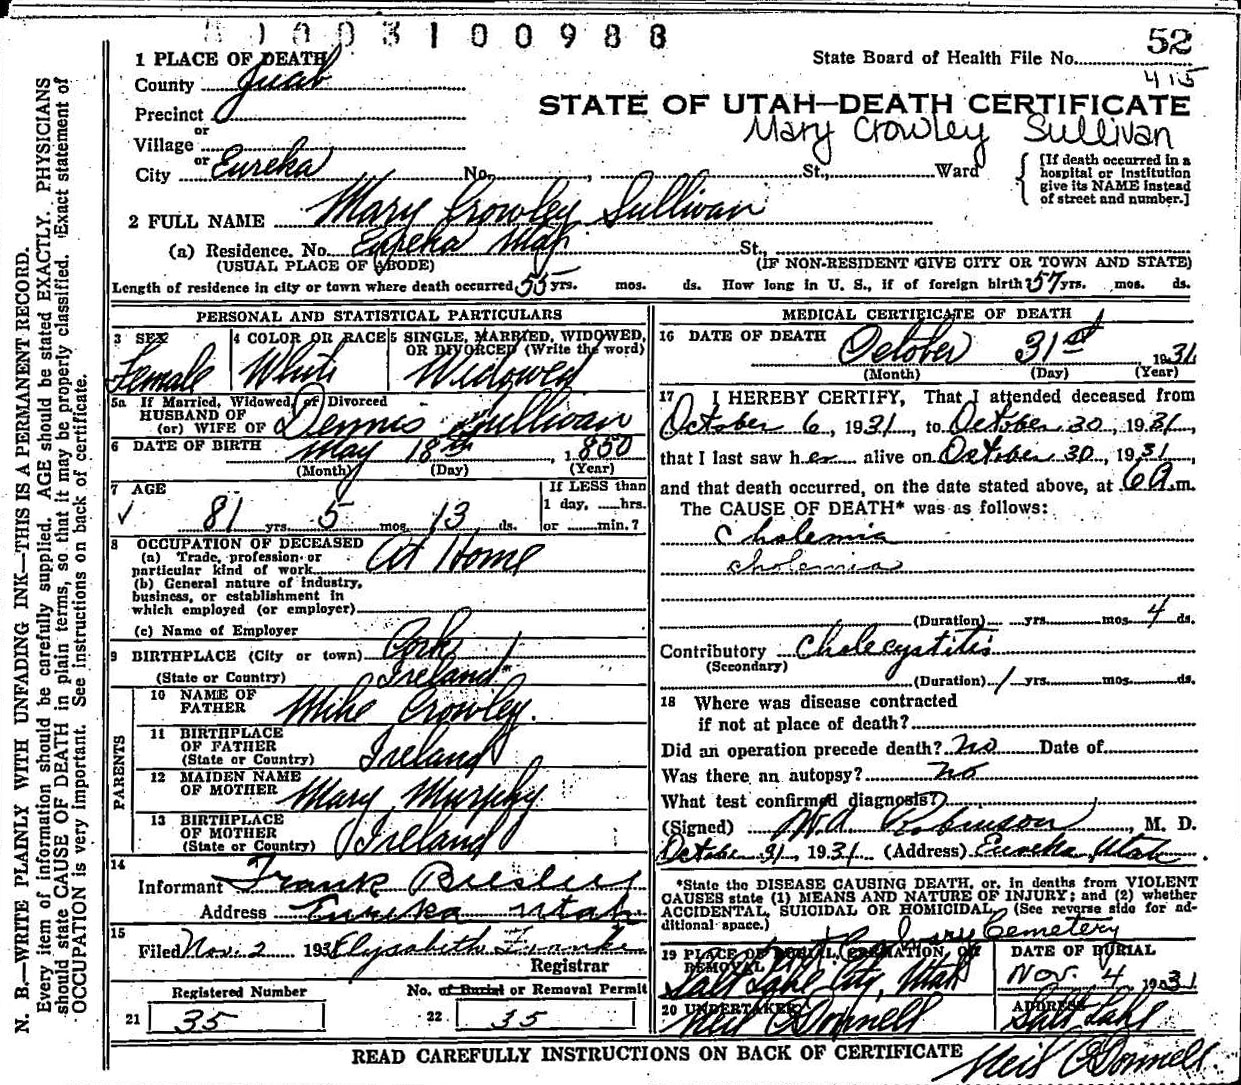 1003100988
52
State Board of Health File No.
415
1 PLACE OF DEATH
County Juab
Precinct
or
Village
or
City Eureka No. , St., Ward
STATE OF UTAH—DEATH CERTIFICATE
Mary Crowley Sullivan
[If death occurred in a
hospital or institution
give its NAME instead
of street and number.]
2 FULL NAME Mary Crowley Sullivan
(a) Residence. No. Eureka Utah St.,
(USUAL PLACE OF ABODE) (IF NON-RESIDENT GIVE CITY OR TOWN AND STATE)
Length of residence in city or town where death occurred 55 yrs. mos. ds. How long in U. S., if of foreign birth? 57 yrs. mos. ds.
PERSONAL AND STATISTICAL PARTICULARS
3 SEX 4 COLOR OR RACE 5 SINGLE, MARRIED, WIDOWED,
OR DIVORCED (Write the word)
Female White Widowed
5a If Married, Widowed, or Divorced
HUSBAND OF
(or) WIFE OF Dennis Sullivan
6 DATE OF BIRTH May 18th, 1850
(Month) (Day) (Year)
7 AGE If LESS than
1 day, hrs.
81 yrs. 5 mos. 13 ds. or min.?
8 OCCUPATION OF DECEASED
(a) Trade, profession or
particular kind of work At Home
(b) General nature of industry,
business, or establishment in
which employed (or employer)
(c) Name of Employer
9 BIRTHPLACE (City or town) Cork
(State or Country) Ireland
PARENTS
10 NAME OF
FATHER Mike Crowley.
11 BIRTHPLACE
OF FATHER
(State or Country) Ireland
12 MAIDEN NAME
OF MOTHER Mary Murphy
13 BIRTHPLACE
OF MOTHER
(State or Country) Ireland
14
Informant Frank
Address Eureka Utah
15
Filed Nov. 2 1931 Elysabeth Franke
Registrar
Registered Number No. of Burial or Removal Permit
21 35 22 35
MEDICAL CERTIFICATE OF DEATH
16 DATE OF DEATH October 31st 1931
(Month) (Day) (Year)
17 I HEREBY CERTIFY, That I attended deceased from
October 6, 1931, to October 30, 1931,
that I last saw her alive on October 30, 1931,
and that death occurred, on the date stated above, at 6 A.m.
The CAUSE OF DEATH* was as follows:
Cholemia
cholemia
(Duration) yrs. mos. 4 ds.
Contributory Cholecystitis
(Secondary)
(Duration) 1 yrs. mos. ds.
18 Where was disease contracted
if not at place of death?
Did an operation precede death? No Date of
Was there an autopsy? no
What test confirmed diagnosis?
(Signed) W.A. Robinson, M. D.
October 31, 1931 (Address) Eureka, Utah.
*State the DISEASE CAUSING DEATH, or, in deaths from VIOLENT
CAUSES state (1) MEANS AND NATURE OF INJURY; and (2) whether
ACCIDENTAL, SUICIDAL OR HOMICIDAL. (See reverse side for ad-
ditional space.)
Cemetery
19 PLACE OF BURIAL, CREMATION, OR
REMOVAL
Salt Lake City, Utah
DATE OF BURIAL
Nov. 4 1931
20 UNDERTAKER Neil O'Donnell
ADDRESS Salt Lake
READ CAREFULLY INSTRUCTIONS ON BACK OF CERTIFICATE
Neil O'Donnell
N. B.—WRITE PLAINLY WITH UNFADING INK—THIS IS A PERMANENT RECORD.
Every item of information should be carefully supplied. AGE should be stated EXACTLY. PHYSICIANS
should state CAUSE OF DEATH in plain terms, so that it may be properly classified. Exact statement of
OCCUPATION is very important. See instructions on back of certificate.